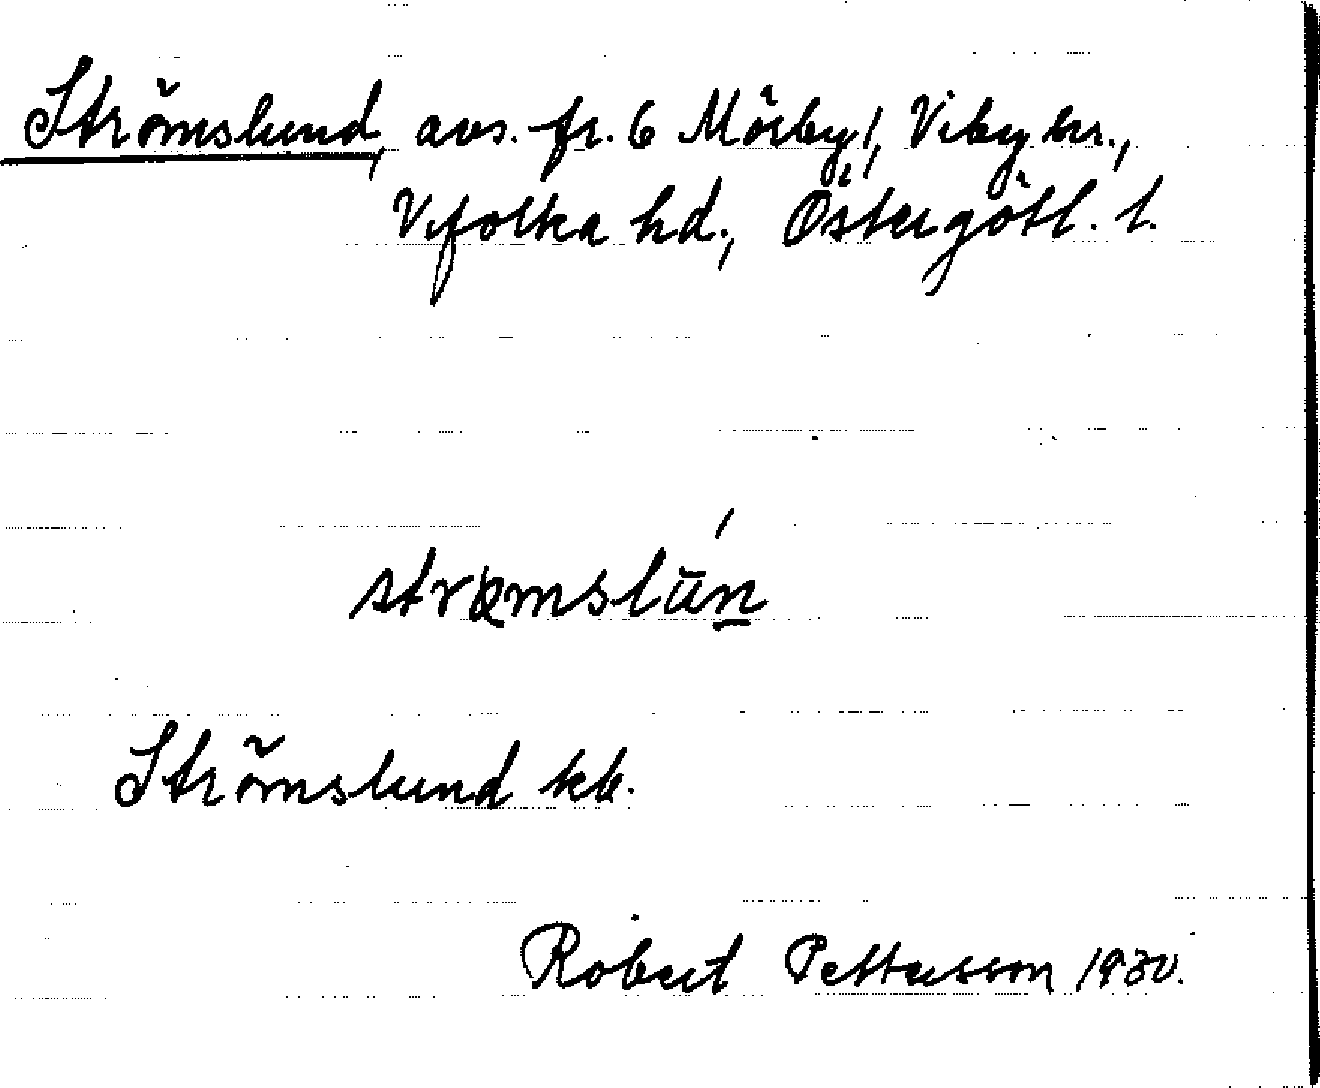 Strömslund, avs. fr. 6 Mörby!, Viby sn.,
Vifolka hd., Östergötl. l.
strømslūn
Strömslund kb.
Robert Pettersson 1930.